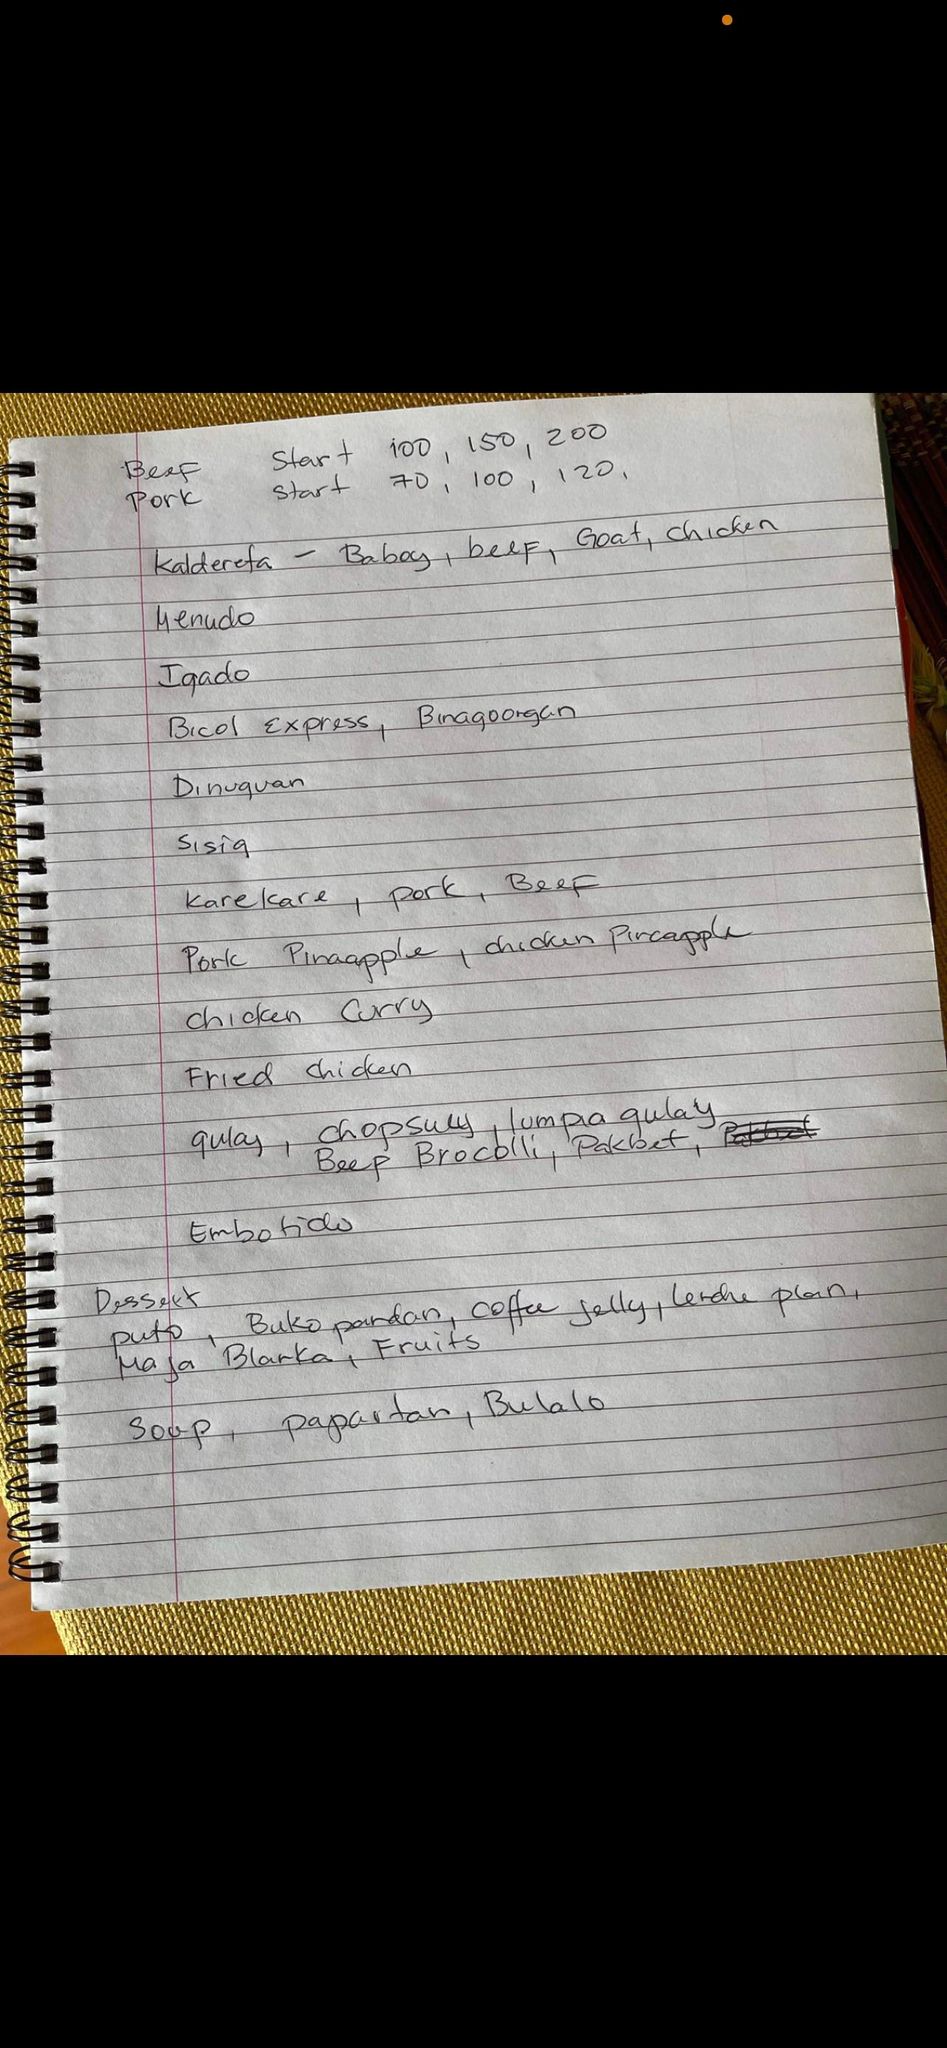 Beef Start 100, 150, 200
Pork Start 70, 100, 120,
Kaldereta - Baboy, beef, Goat, chicken
Menudo
Igado
Bicol Express, Binagoongan
Dinuguan
Sisig
Karekare, pork, Beef
Pork Pinaapple, chicken Pineapple
Chicken Curry
Fried chicken
gulay, chopsuey, lumpia gulay
Beep Brocolli, Pakbet,
Embotido
Dessert
puto, Buko pandan, coffee jelly, leche plan,
Maja Blanka, Fruits
Soup, papaitan, Bulalo